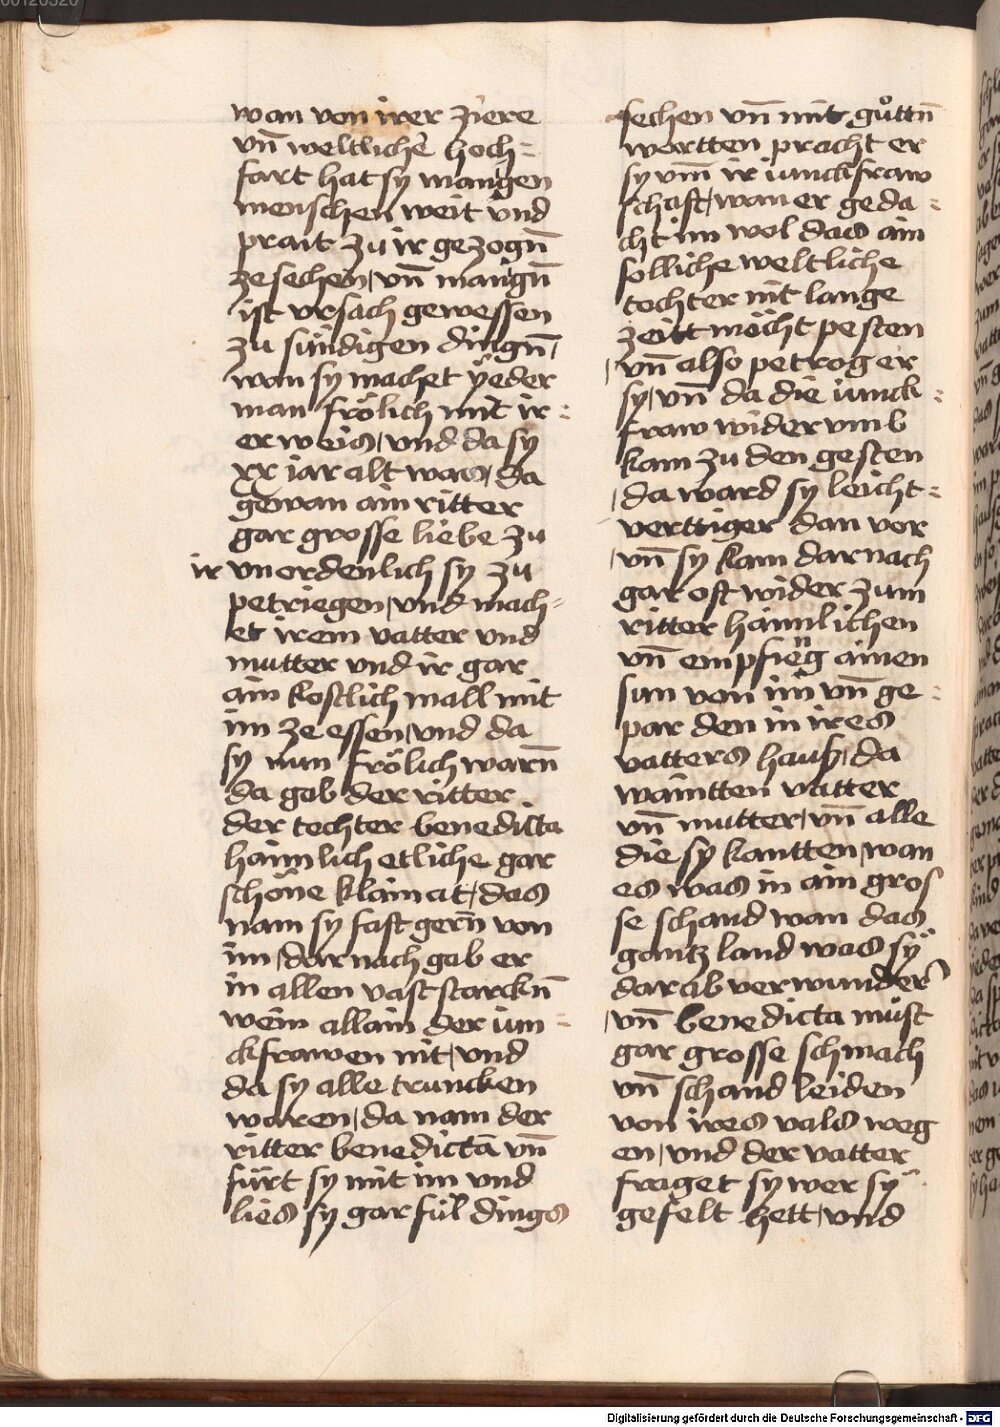 wan von irer ziere
vn̄ weltlicher hoch=
fart hat sy mangen
menschen weit vnd
prait zu ir gezogn̄
ze sechen / vn̄ mangn̄
ist vrsach gewessen
zu sündigen dingn̄ /
wan sy machet yeder
man frölich mit ir=
er weis / vnd da sy
xx iar alt was / da
gewan ain ritter
gar grosse liebe zu
ir vnordenlich sy zu
petriegen / vnd mach=
et irem vatter vnd
mutter vnd ir gar
ain kostlich mall mit
im ze essen / vnd da
sy nun frölich warn̄
da gab der ritter
der tochter benedicta
haimlich etliche gar
schöne klainat / das
nam sy fast gern̄ von
im / dar nach gab er
in allen vast starckn̄
wein allain der iun=
ckfrawen nit / vnd
da sy alle truncken
waren / da nam der
ritter benedicta vn̄
fürt sy mit im vnd
lies sy gar fül dings
sechen vn̄ mit gůttn̄
wortten pracht er
sy vm̄ ir iunckfraw
schaft / wan er geda=
cht im wol das ain
solliche weltliche
tochter nit lange
zeitt möcht pesten
/ vn̄ also petrog er
sy / vn̄ da die iunck=
fraw wider vmb
kam zu den gesten
/ da ward sy leicht=
verttiger dan vor
/ vn̄ sy kam dar nach
gar oft wider zum
ritter haimlichen
vn̄ empfieng ainen
sun von im vn̄ ge=
par den in ires
vatters haus / da
waintten vatter
vn̄ mutter / vn̄ alle
die sy kantten / wan
es was in ain gros
se schand wan das
gantz land was sy
darab verwunder
/ vn̄ benedicta můst
gar grosse schmach
vn̄ schand leiden
von ires vals weg
en / vnd der vatter
fraget sy wer sy
gefelt hett / vnd
Digitalisierung gefördert durch die Deutsche Forschungsgemeinschaft - DFG